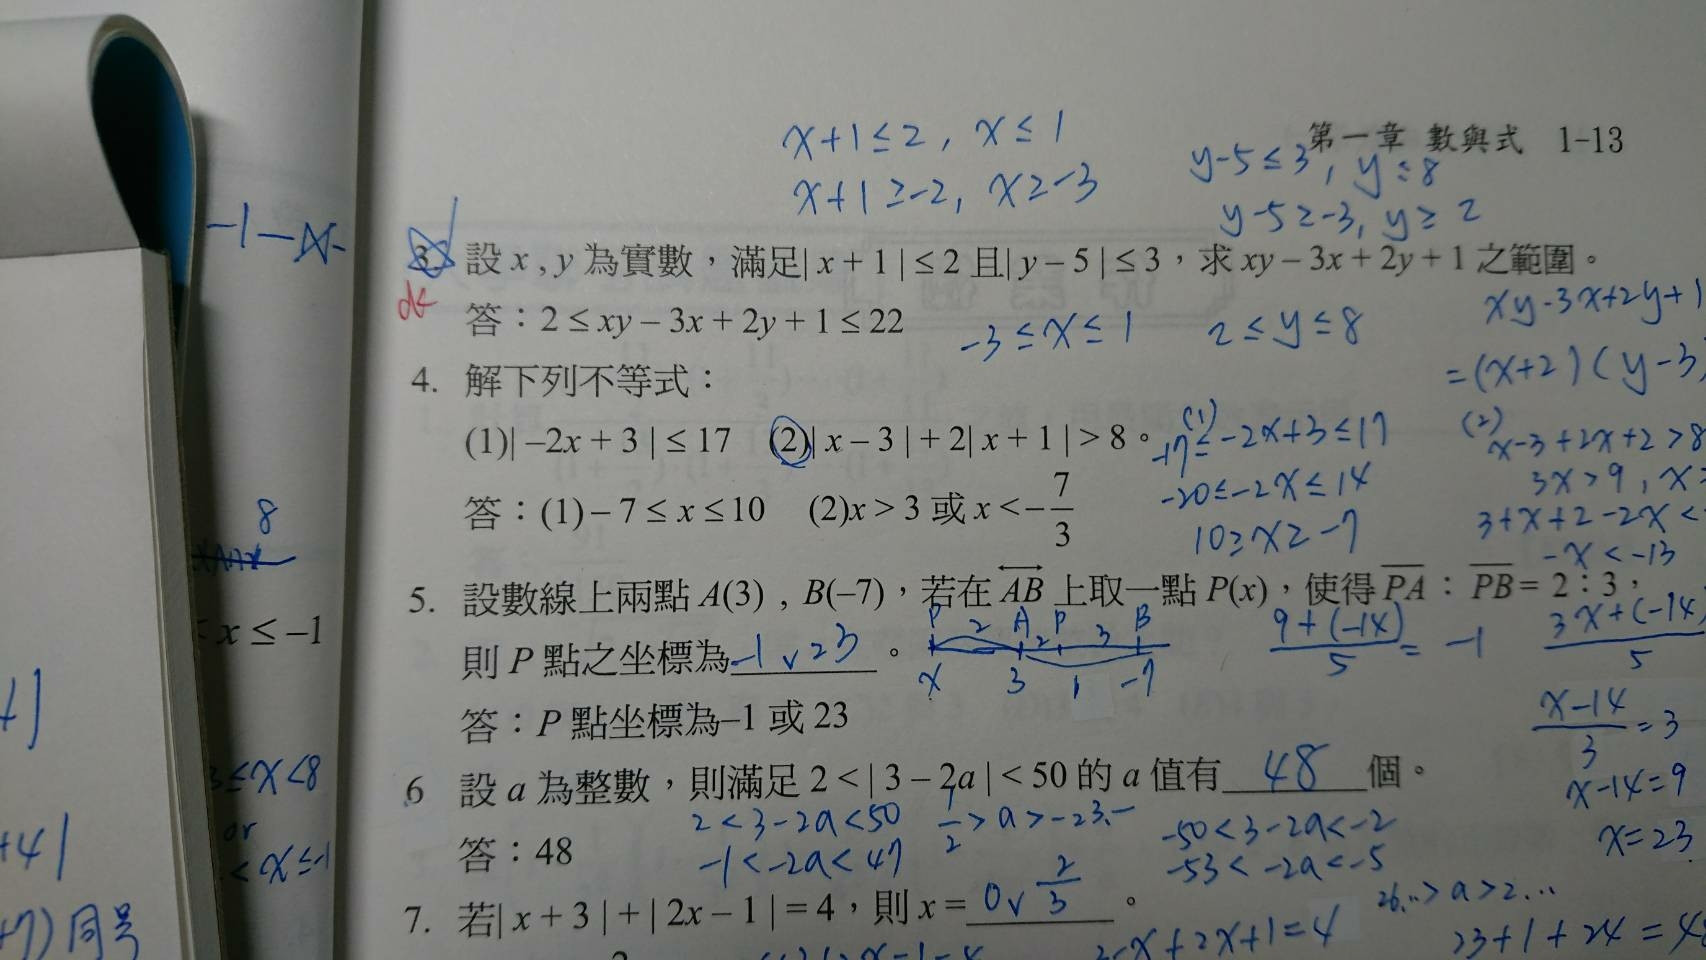 第一章 數與式 1-13
x+1≤2, x≤1
x+1≥-2, x≥-3
y-5≤3, y≤8
y-5≥-3, y≥2
3. 設 x , y 為實數，滿足| x + 1 | ≤ 2 且| y – 5 | ≤ 3，求 xy – 3x + 2y + 1 之範圍。
答：2 ≤ xy – 3x + 2y + 1 ≤ 22
-3≤x≤1 2≤y≤8
xy-3x+2y+1
=(x+2)(y-3)
4. 解下列不等式：
(1)| –2x + 3 | ≤ 17 (2)| x – 3 | + 2| x + 1 | > 8。
答：(1) – 7 ≤ x ≤ 10 (2)x > 3 或 x < – 7/3
(1)
-17≤-2x+3≤17
-20≤-2x≤14
10≥x≥-7
(2)
x-3+2x+2>8
3x>9, x>
3+x+2-2x<
-x<-13
5. 設數線上兩點 A(3) , B(–7)，若在 AB 上取一點 P(x)，使得 PA : PB = 2 : 3，
則 P 點之坐標為 -1 ∨ 23 。
P 2 A 2 P 3 B
x 3 1 -7
9+(-14)/5 = -1
3x+(-14)/5
答：P 點坐標為–1 或 23
x-14/3 = 3
x-14=9
x=23
6 設 a 為整數，則滿足 2 < | 3 – 2a | < 50 的 a 值有 48 個。
2<3-2a<50 1/2>a>-23.-
-1<-2a<47
-50<3-2a<-2
-53<-2a<-5
答：48
26..>a>2...
23+1+24=48
7. 若| x + 3 | + | 2x – 1 | = 4，則 x = 0 ∨ 2/3 。
x+2x+1=4
8
x ≤ –1
3≤x<8
or
<x≤-1
+4|
+7)同号